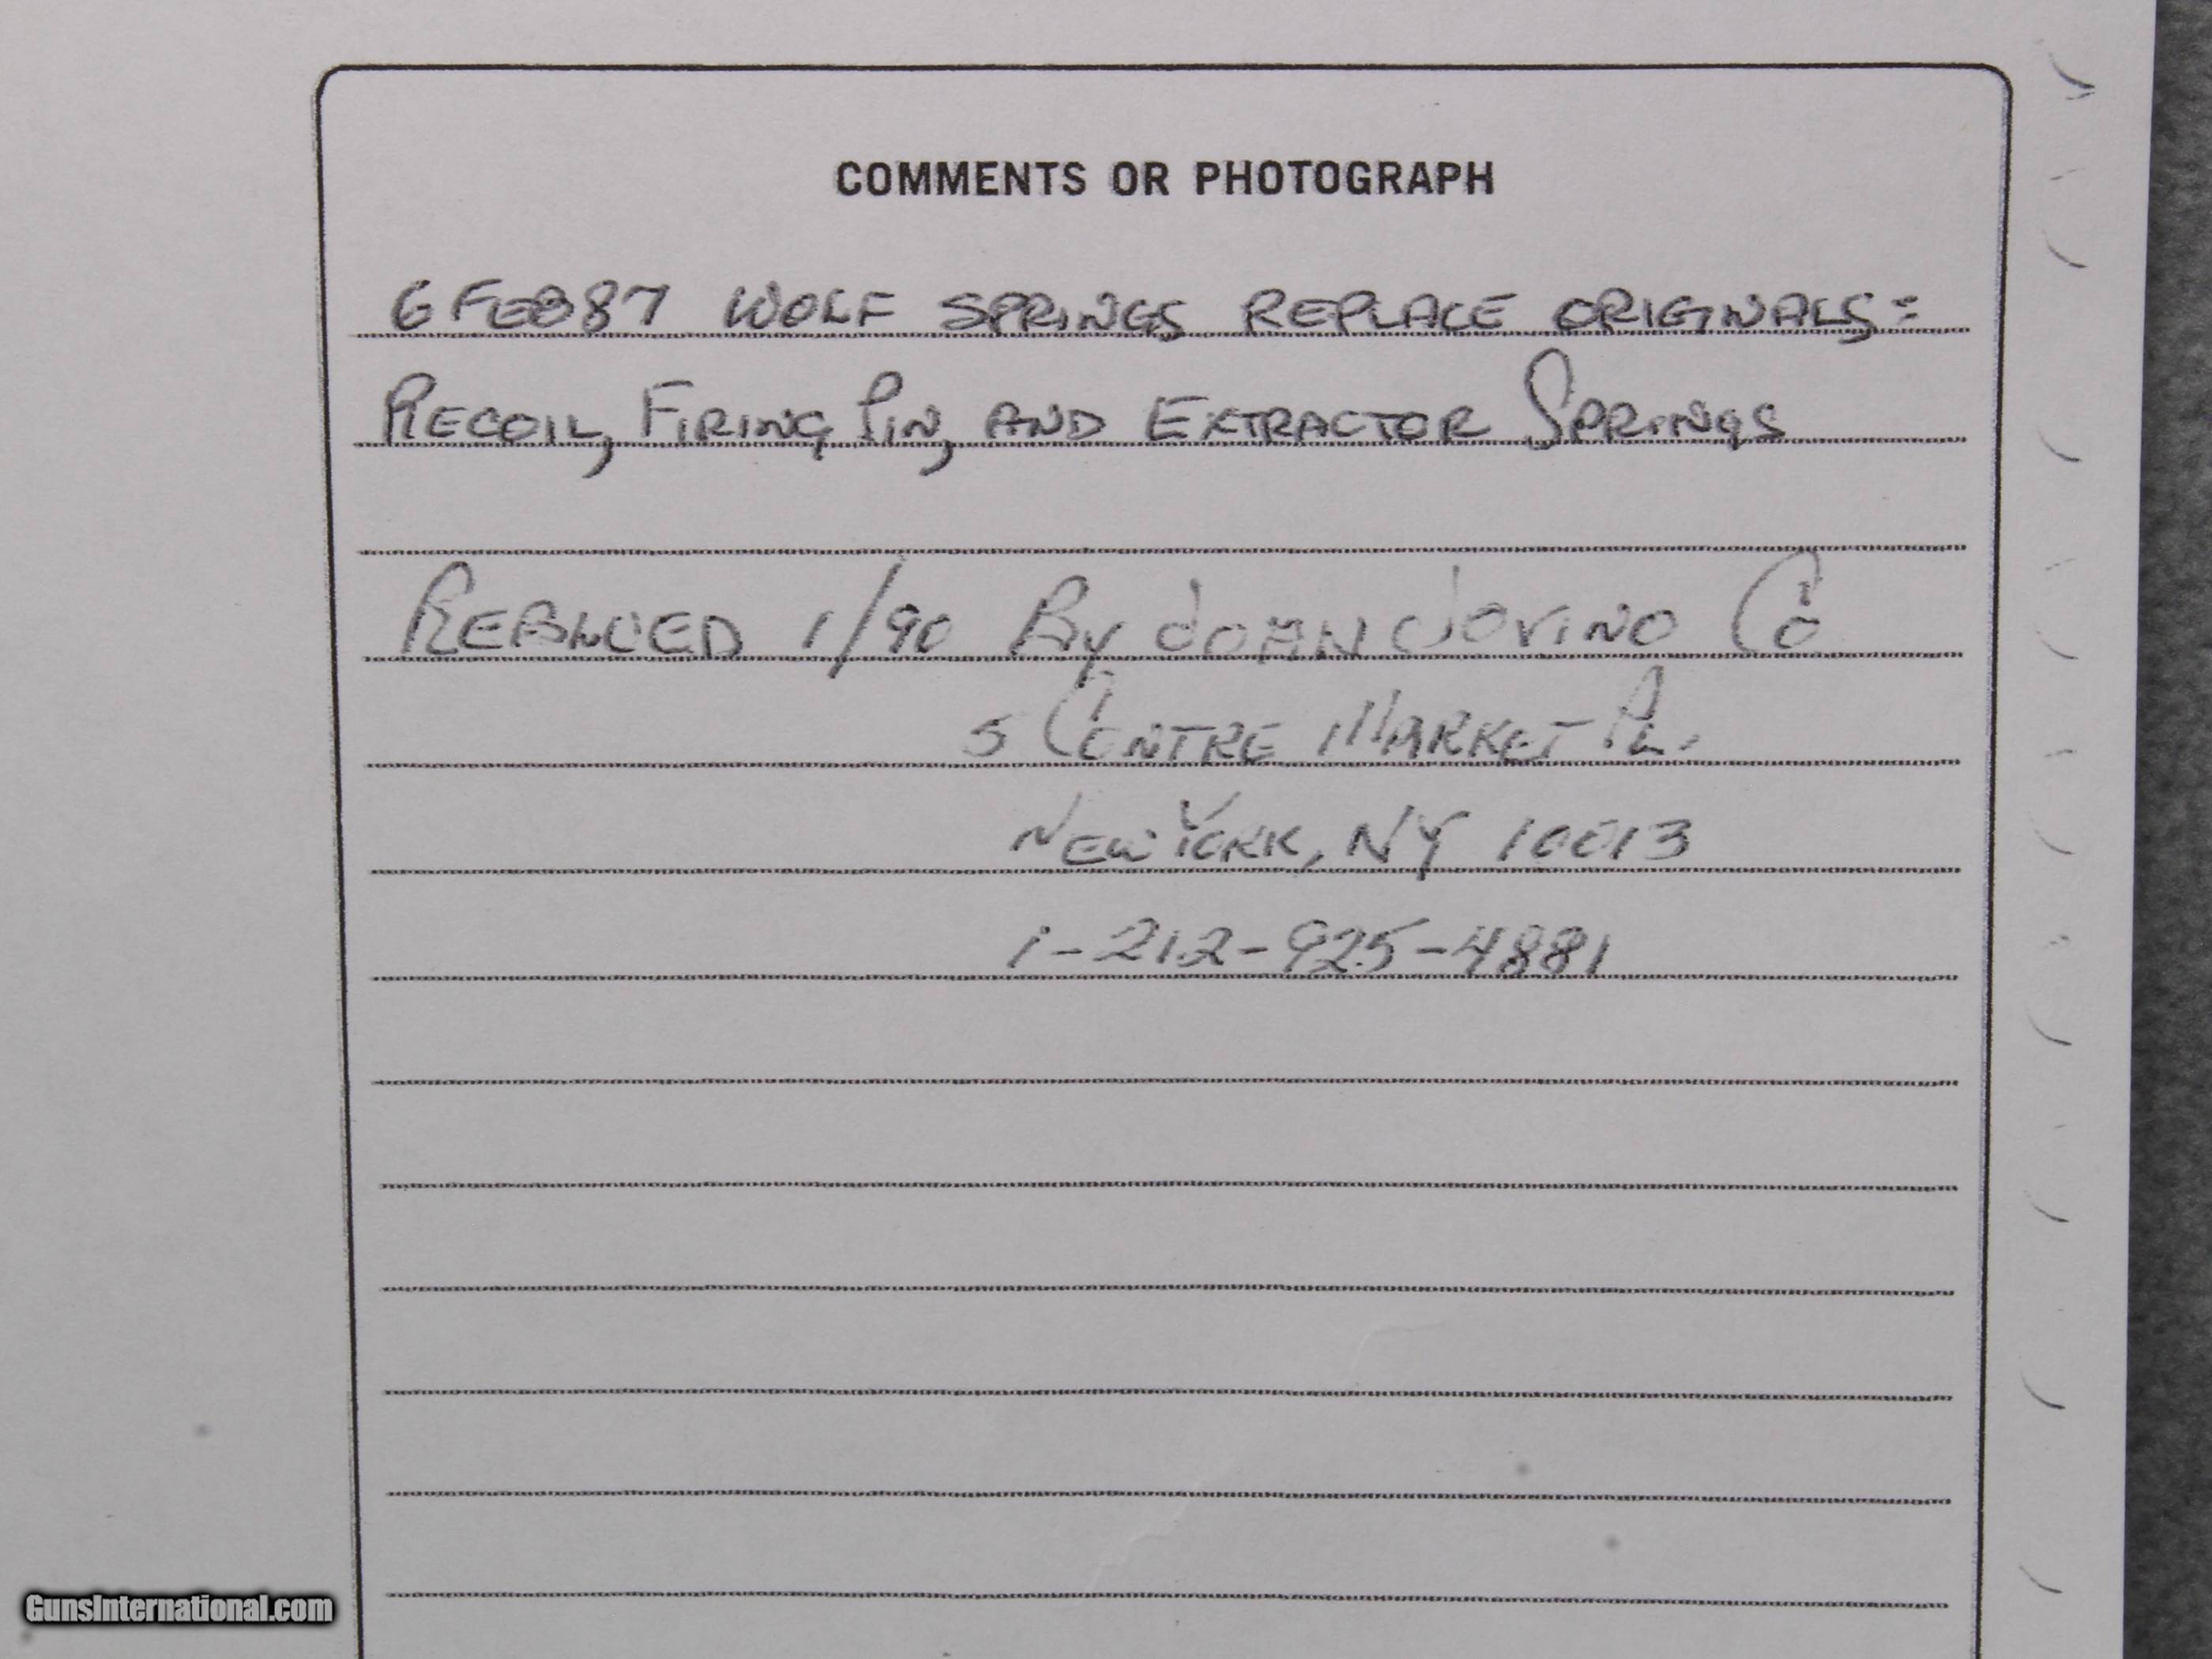 COMMENTS OR PHOTOGRAPH
6 FEB 87 WOLF SPRINGS REPLACE ORIGINALS:
RECOIL, FIRING PIN, AND EXTRACTOR SPRINGS
1/90 By JOHN JOVINO Co
5 CENTRE MARKET PL.
NEW YORK, NY 10013
1-212-925-4881
GunsInternational.com